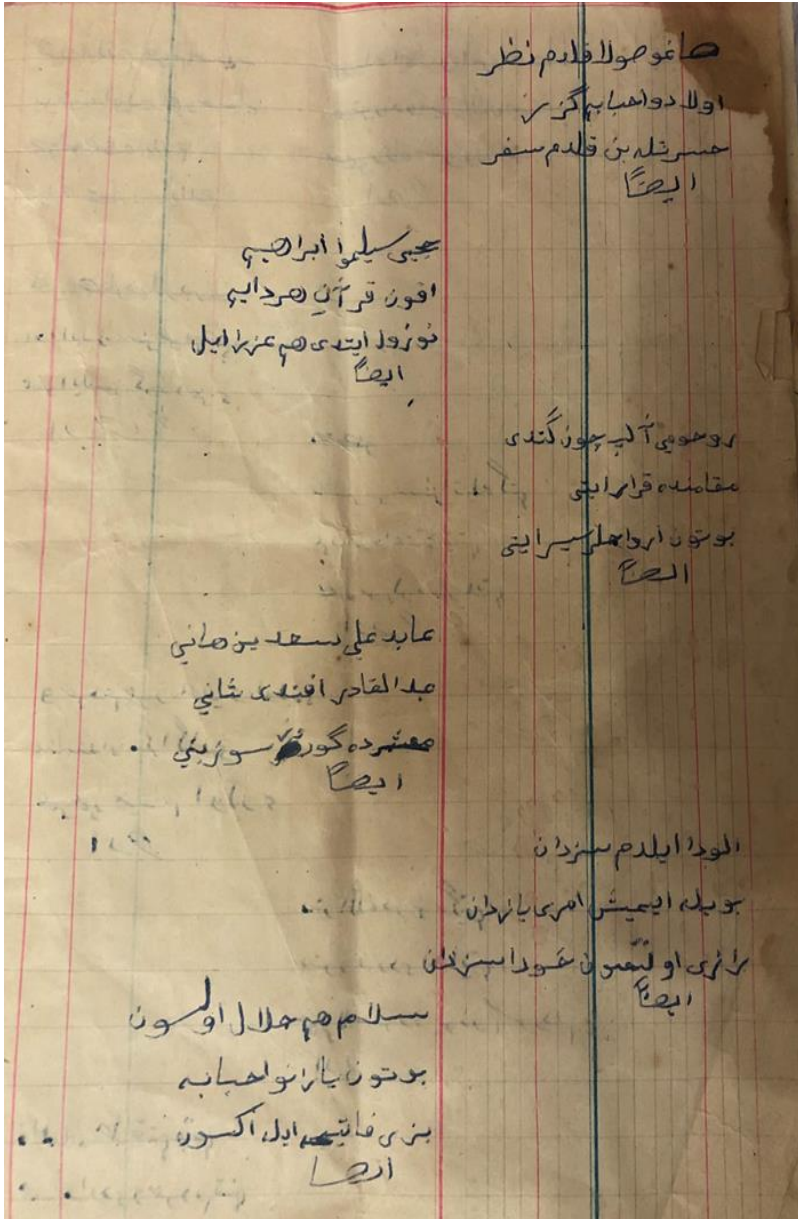 صاغو صولا قلدم نظر
اولادو احبابم گزر
حسرتله بن قلدم سفر
ايضاً
يحيى سيلموا ابراهيم
اقون قرآن هردايم
نوزول ايتدى هم عزرايل
ايضاً
روحومي آلب چون گتدى
مقامنده قرار ايتى
بوتون ارواحلر سير ايتى
ايضاً
عابد علي سعد بن هاني
عبد القادر افندى ثاني
معتمرده گور سوزيني
ايضاً
الودا ايلدم سزدان
بويله ايميش امرى يازدان
رازى اولسون خودا سزدان
ايضاً
سلام هم حلال اولسون
بوتون يارانو احبابه
بزى فاتحه ايله اكسون
ايضا